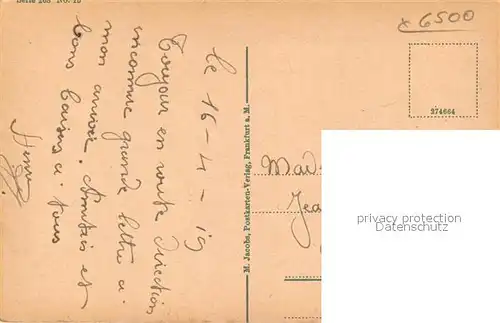 Serie 268 No. 10
x 6500
le 16-4-19
Toujour en route Direction
inconnue grande lettre a
mon arrivée. Amitiés et
bons baisers a tous
374664
M. Jacobs, Postkarten-Verlag, Frankfurt a. M.
Mad
Jea
privacy protection
oldthing.com